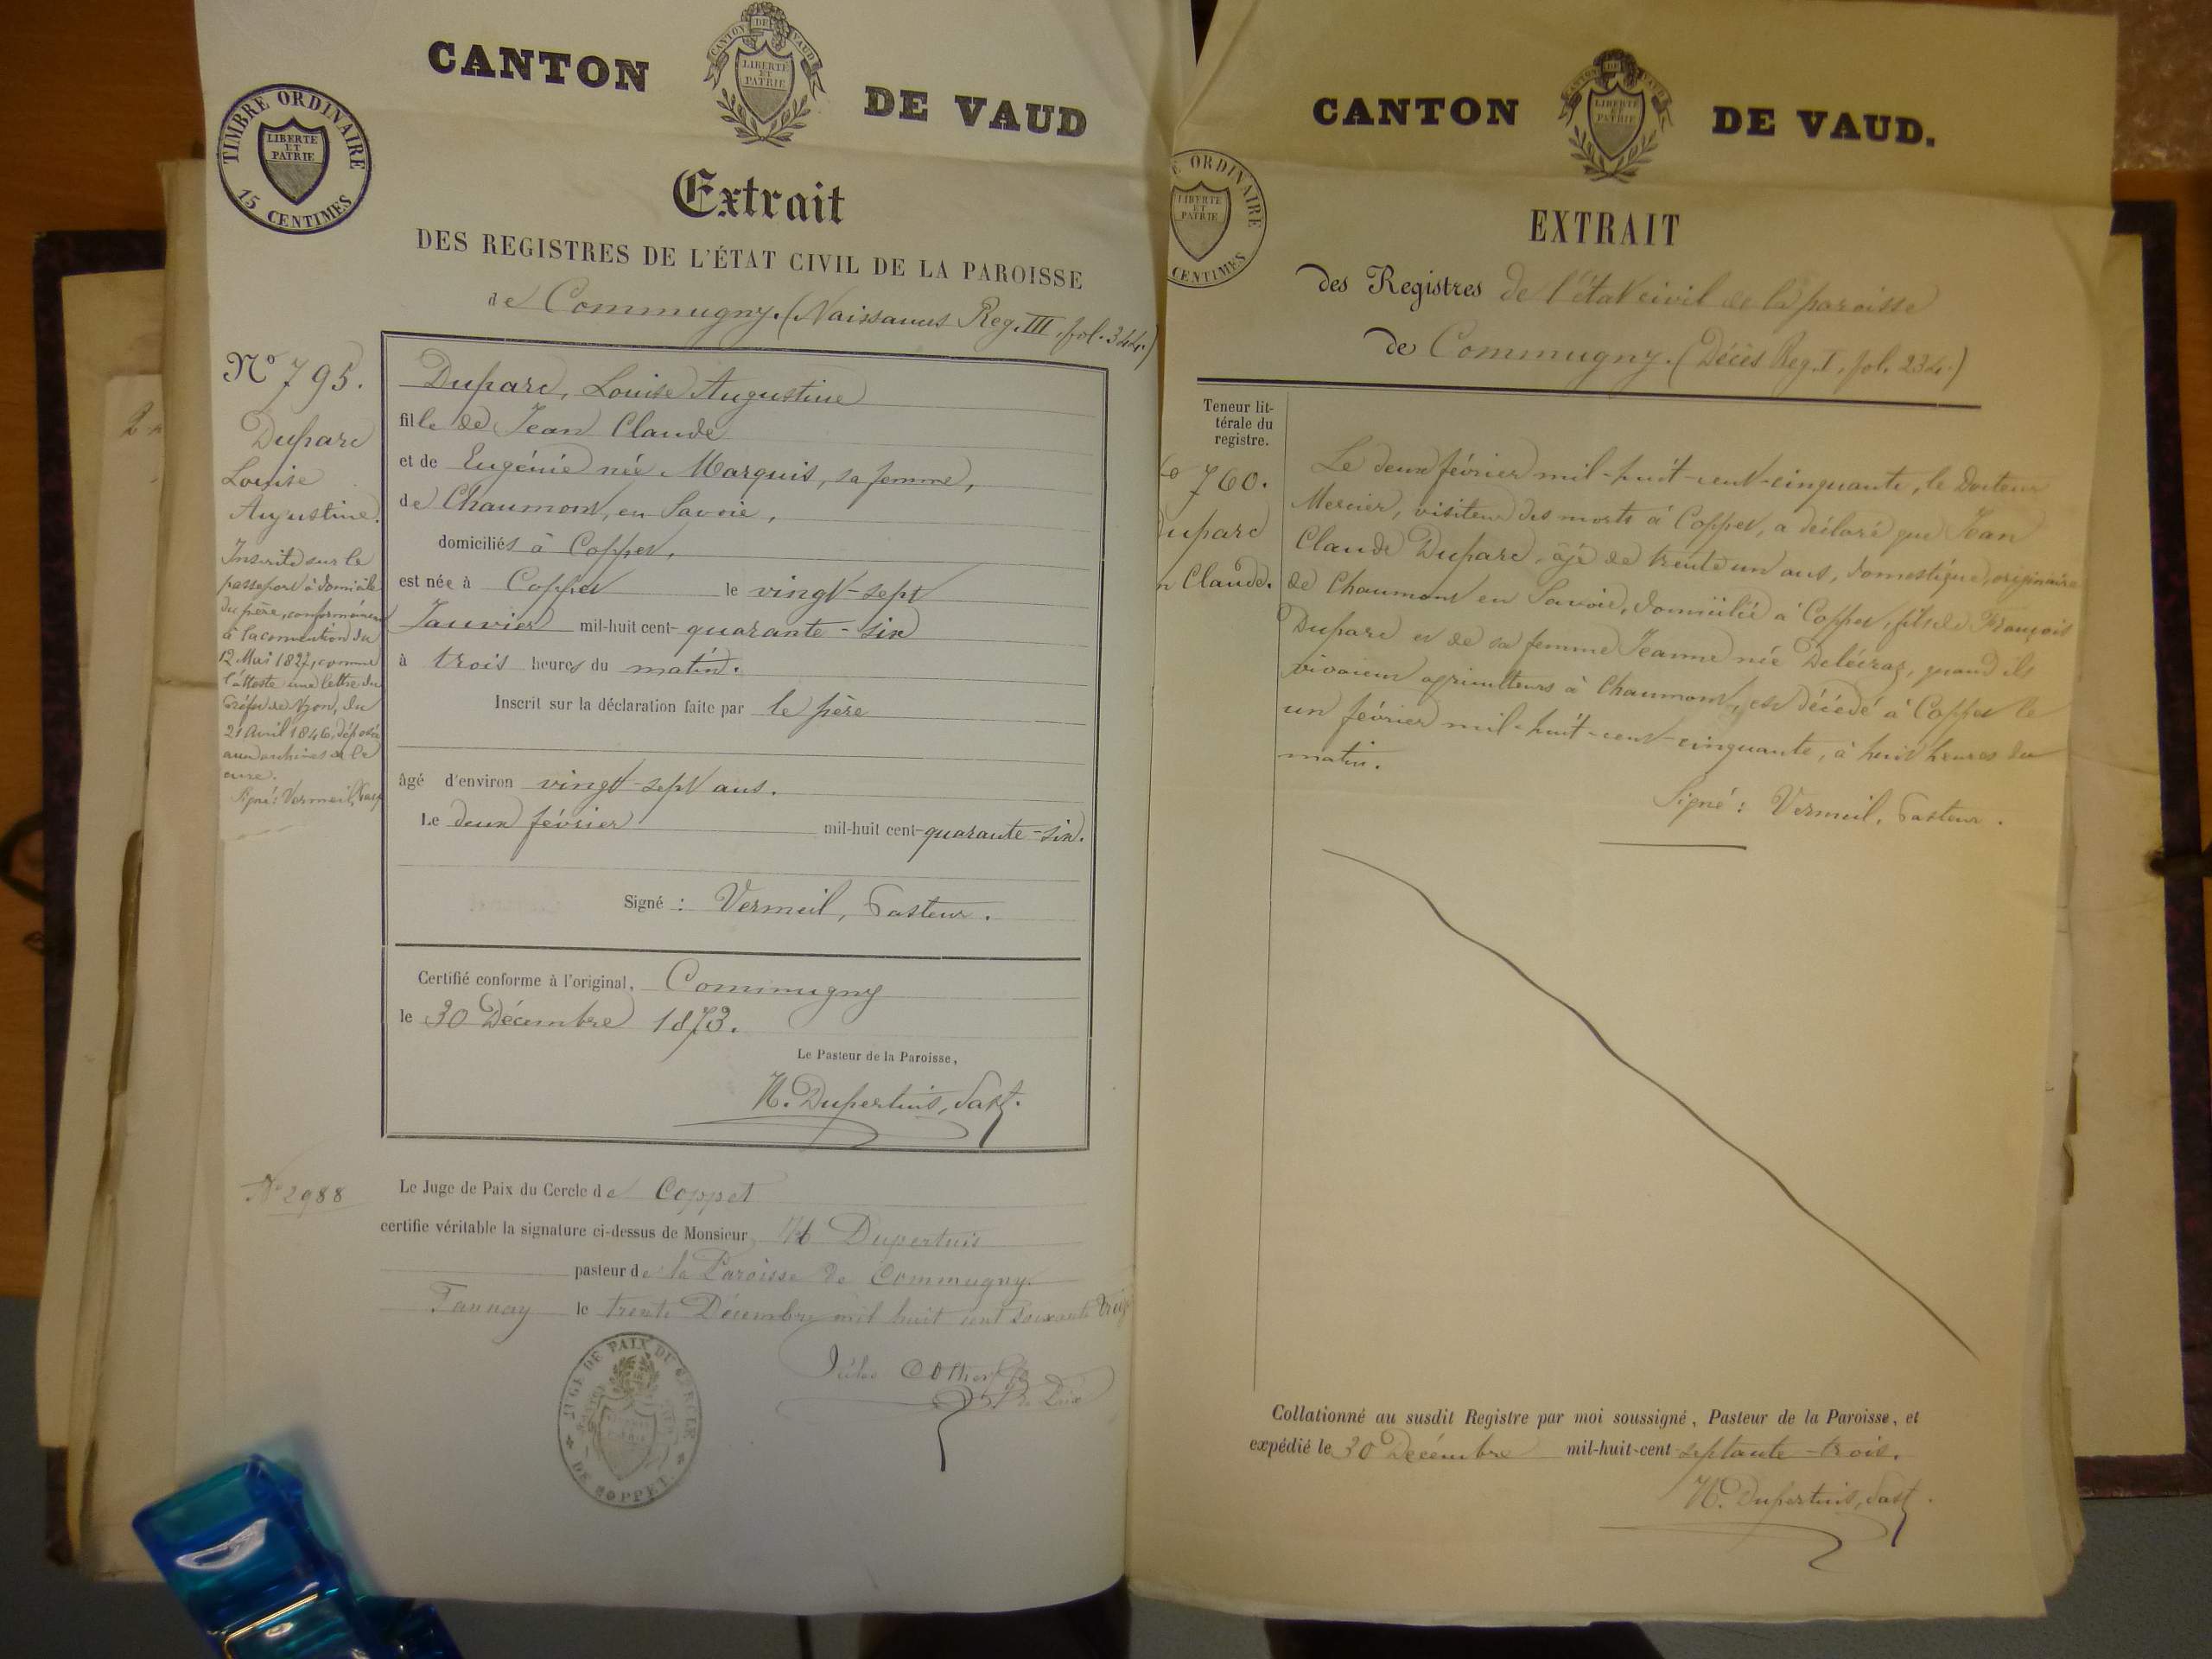 CANTON DE VAUD
CANTON DE VAUD
LIBERTÉ
ET
PATRIE
TIMBRE ORDINAIRE
LIBERTÉ
ET
PATRIE
15 CENTIMES
Extrait
DES REGISTRES DE L'ÉTAT CIVIL DE LA PAROISSE
de Commugny. (Naissances Reg. III, fol. 344.)
No 795.
Duparc
Louise
Augustine.
Inscrite sur le
passeport à domicile
du père, conformément
à la convention du
12 Mai 1827, comme
l'atteste une lettre du
Préfet de Nyon, du
21 Avril 1846, déposée
aux archives de la
cure.
Signé: Vermeil, Past
Duparc, Louise Augustine
fille de Jean Claude
et de Eugénie née Marquis, sa femme,
de Chaumont, en Savoie,
domiciliés à Coppet,
est née à Coppet le vingt-sept
Janvier mil-huit cent-quarante-six
à trois heures du matin.
Inscrit sur la déclaration faite par le père
âgé d'environ vingt-sept ans.
Le deux février mil-huit cent-quarante-six.
Signé : Vermeil, Pasteur.
Certifié conforme à l'original, Commugny
le 30 Décembre 1873.
Le Pasteur de la Paroisse,
H. Dupertuis, Past.
No 2988
Le Juge de Paix du Cercle de Coppet
certifie véritable la signature ci-dessus de Monsieur H Dupertuis
pasteur de la Paroisse de Commugny.
Tannay le trente Décembre mil huit cent soixante treize
Jules
JUGE DE PAIX DU CERCLE
DE COPPET
CANTON DE VAUD.
CANTON DE VAUD
LIBERTÉ
ET
PATRIE
E ORDINAIRE
LIBERTÉ
ET
PATRIE
CENTIMES
EXTRAIT
des Registres de l'état civil de la paroisse
de Commugny. (Décès Reg. I, fol. 234.)
Teneur lit-
térale du
registre.
o 760.
Duparc
n Claude.
Le deux février mil-huit-cent-cinquante, le Docteur
Mercier, visiteur des morts à Coppet, a déclaré que Jean
Claude Duparc, âgé de trente un ans, domestique, originaire
de Chaumont en Savoie, domicilié à Coppet, fils de François
Duparc et de sa femme Jeanne née Deléraz, quand ils
vivaient agriculteurs à Chaumont, est décédé à Coppet le
un février mil-huit-cent-cinquante, à huit heures du
matin.
Signé : Vermeil, Pasteur.
Collationné au susdit Registre par moi soussigné, Pasteur de la Paroisse, et
expédié le 30 Décembre mil-huit-cent-septante-trois.
H. Dupertuis, Past.